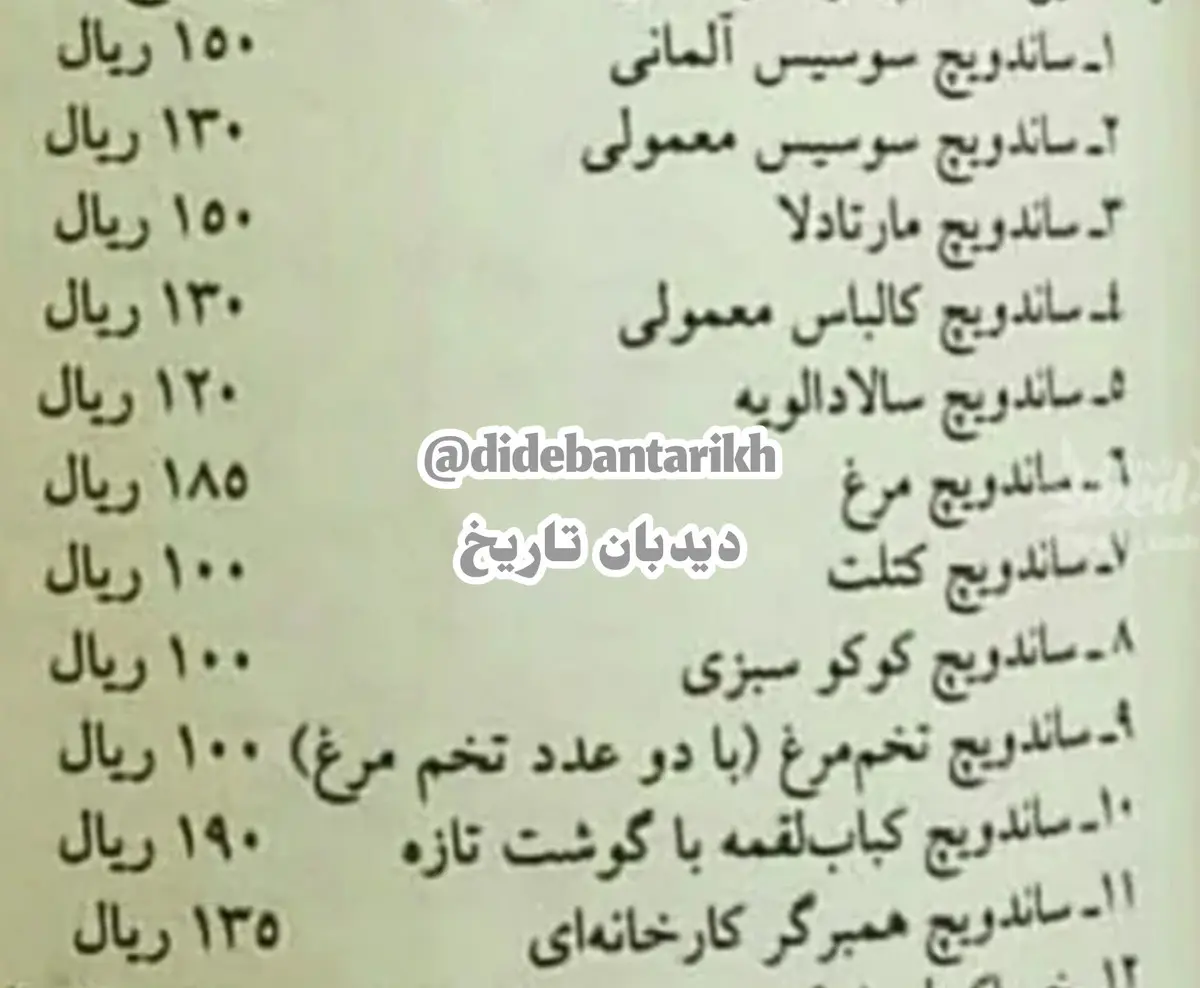 ۱ـ ساندویچ سوسیس آلمانی ۱۵۰ ریال
۲ـ ساندویچ سوسیس معمولی ۱۳۰ ریال
۳ـ ساندویچ مارتادلا ۱۵۰ ریال
٤ـ ساندویچ کالباس معمولی ۱۳۰ ریال
۵ـ ساندویچ سالادالویه ۱۲۰ ریال
@didebantarikh
٦ـ ساندویچ مرغ ۱۸۵ ریال
دیدبان تاریخ
۷ـ ساندویچ کتلت ۱۰۰ ریال
۸ـ ساندویچ کوکو سبزی ۱۰۰ ریال
۹ـ ساندویچ تخم‌مرغ (با دو عدد تخم مرغ) ۱۰۰ ریال
۱۰ـ ساندویچ کباب‌لقمه با گوشت تازه ۱۹۰ ریال
۱۱ـ ساندویچ همبرگر کارخانه‌ای ۱۳۵ ریال
۱۲